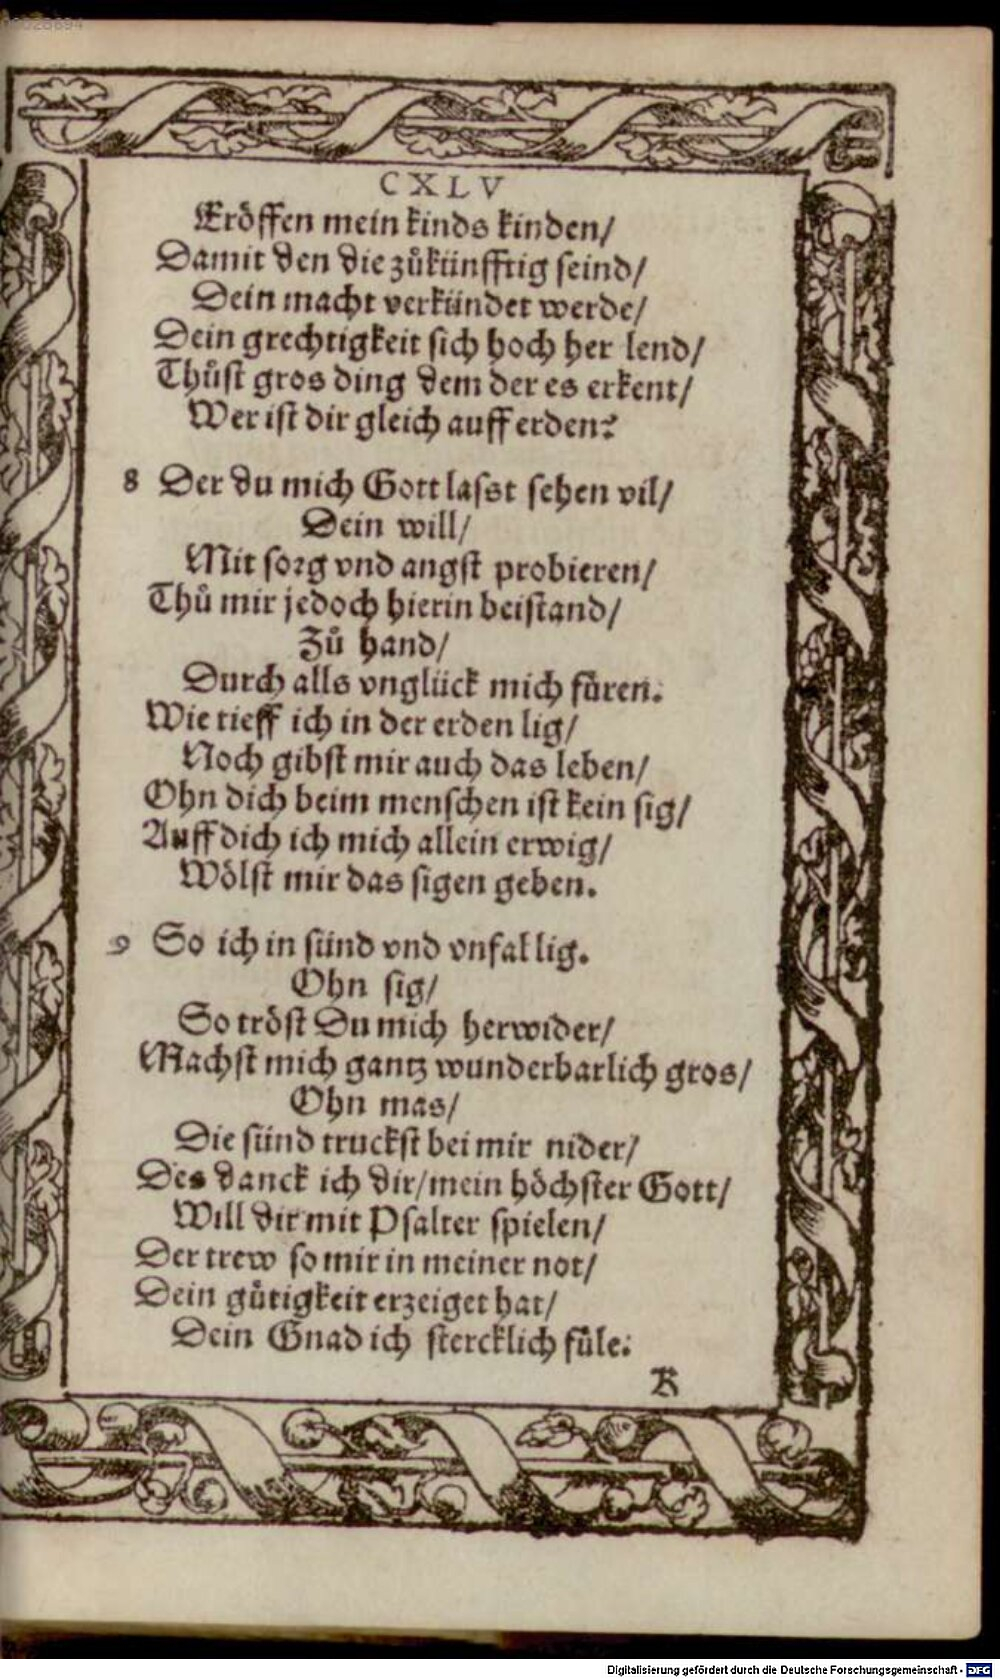 CXLV
Eröffen mein kinds kinden/
Damit den die zůkünfftig seind/
Dein macht verkündet werde/
Dein grechtigkeit sich hoch her lend/
Thůst gros ding dem der es erkent/
Wer ist dir gleich auff erden?
8 Der du mich Gott lasst sehen vil/
Dein will/
Mit sorg vnd angst probieren/
Thů mir jedoch hierin beistand/
Zů hand/
Durch alls vnglück mich füren.
Wie tieff ich in der erden lig/
Noch gibst mir auch das leben/
Ohn dich beim menschen ist kein sig/
Auff dich ich mich allein erwig/
Wölst mir das sigen geben.
9 So ich in sünd vnd vnfal lig.
Ohn sig/
So tröst Du mich herwider/
Machst mich gantz wunderbarlich gros/
Ohn mas/
Die sünd truckst bei mir nider/
Des danck ich dir/mein höchster Gott/
Will dir mit Psalter spielen/
Der trew so mir in meiner not/
Dein gůtigkeit erzeiget hat/
Dein Gnad ich stercklich füle.
K
Digitalisierung gefördert durch die Deutsche Forschungsgemeinschaft - DFG